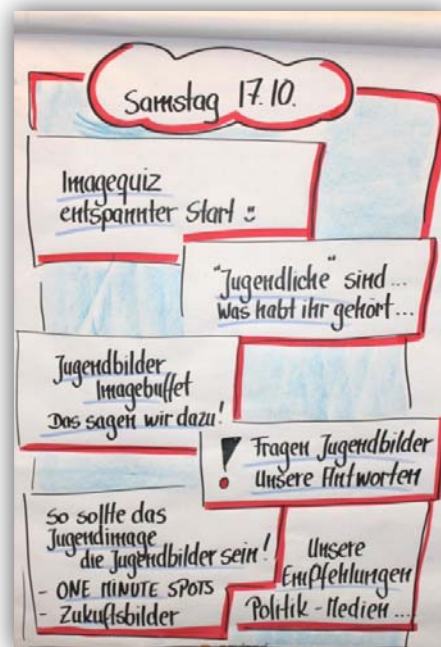 Samstag 17.10.
Imagequiz
entspannter Start
"Jugendliche" sind...
Was habt ihr gehört...
Jugendbilder
Imagebuffet
Das sagen wir dazu!
! Fragen Jugendbilder
Unsere Antworten
So sollte das
Jugendimage
die Jugendbilder sein!
- ONE MINUTE SPOTS
- Zukuftsbilder
Unsere
Empfehlungen
Politik - Medien ....